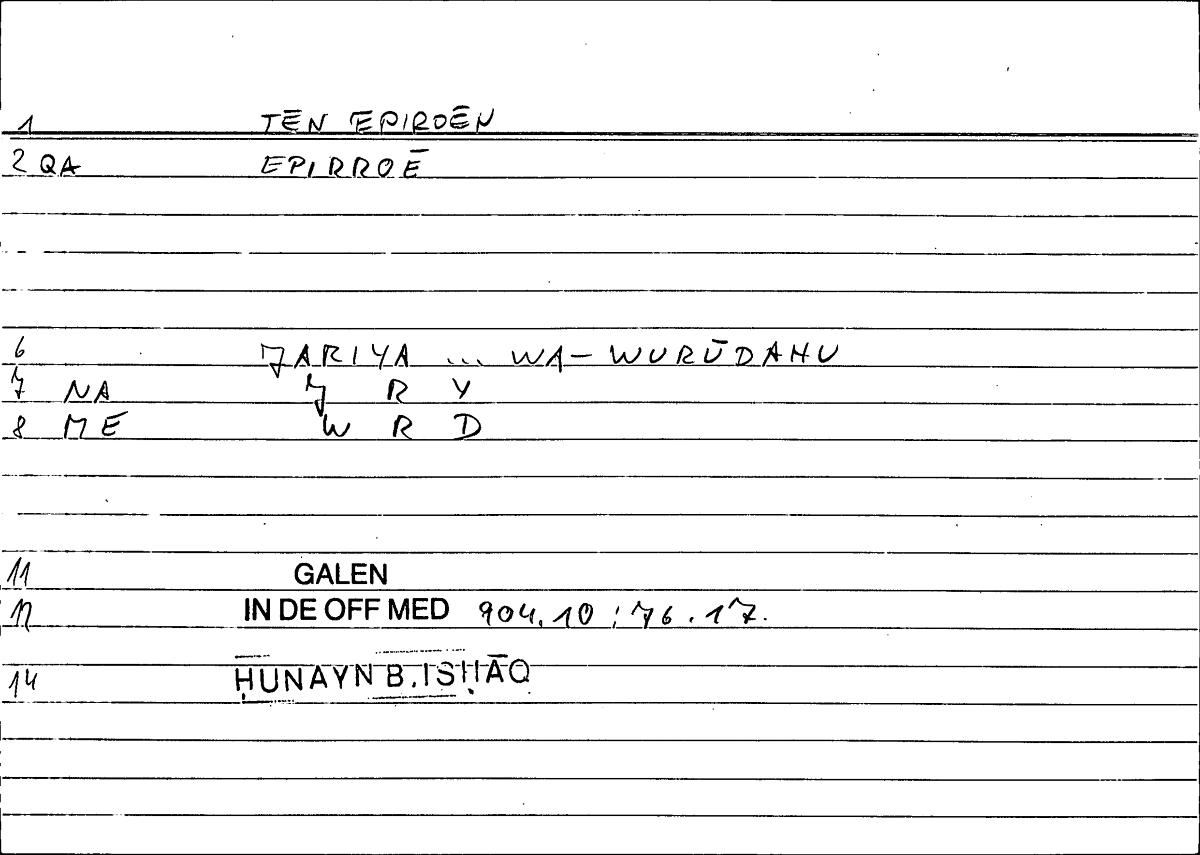 1 TĒN EPIROĒN
2 QA EPIRROĒ
6 JARIYA ... WA-WURŪDAHU
7 NA J R Y
8 ME W R D
11 GALEN
12 IN DE OFF MED 904.10 : 76.17.
14 ḤUNAYN B. ISḤĀQ